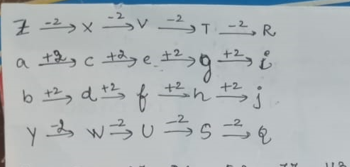 Z -2→ X -2→ V -2→ T -2→ R
a +2→ c +2→ e +2→ g +2→ i
b +2→ d +2→ f +2→ h +2→ j
Y -2→ W -2→ U -2→ S -2→ Q